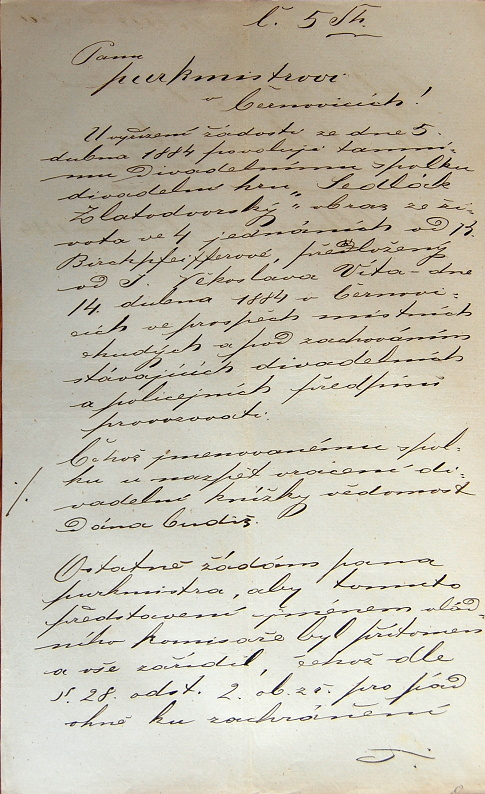 č. 5 Th.
Panu
purkmistrovi
v Černovicích!
U vyřízení žádosti ze dne 5.
dubna 1884 povoluji tammí-
mu Divadelnímu spolku
divadelní hru „Sedlák
Zlatodvorský" obraz ze ži-
vota ve 4 jednáních od K.
Birchpfeifferové, přeložený
od J. Věkoslava Víta - dne
14. dubna 1884 v Černovi-
cích ve prospěch místních
chudých a pod zachováním
stávajících divadelních
a policejních předpisů
provozovati.
Čehož jmenovanému spol-
ku u nazpět vrácení di-
vadelní knížky vědomost
Dána budiž.
Ostatně žádám pana
purkmistra, aby tomuto
představení jménem vlád-
ního komisaře byl přítomen
a vše zařídil, čehož dle
§. 28. odst. 2. ob. zř. pro pád
ohně ku zachránění